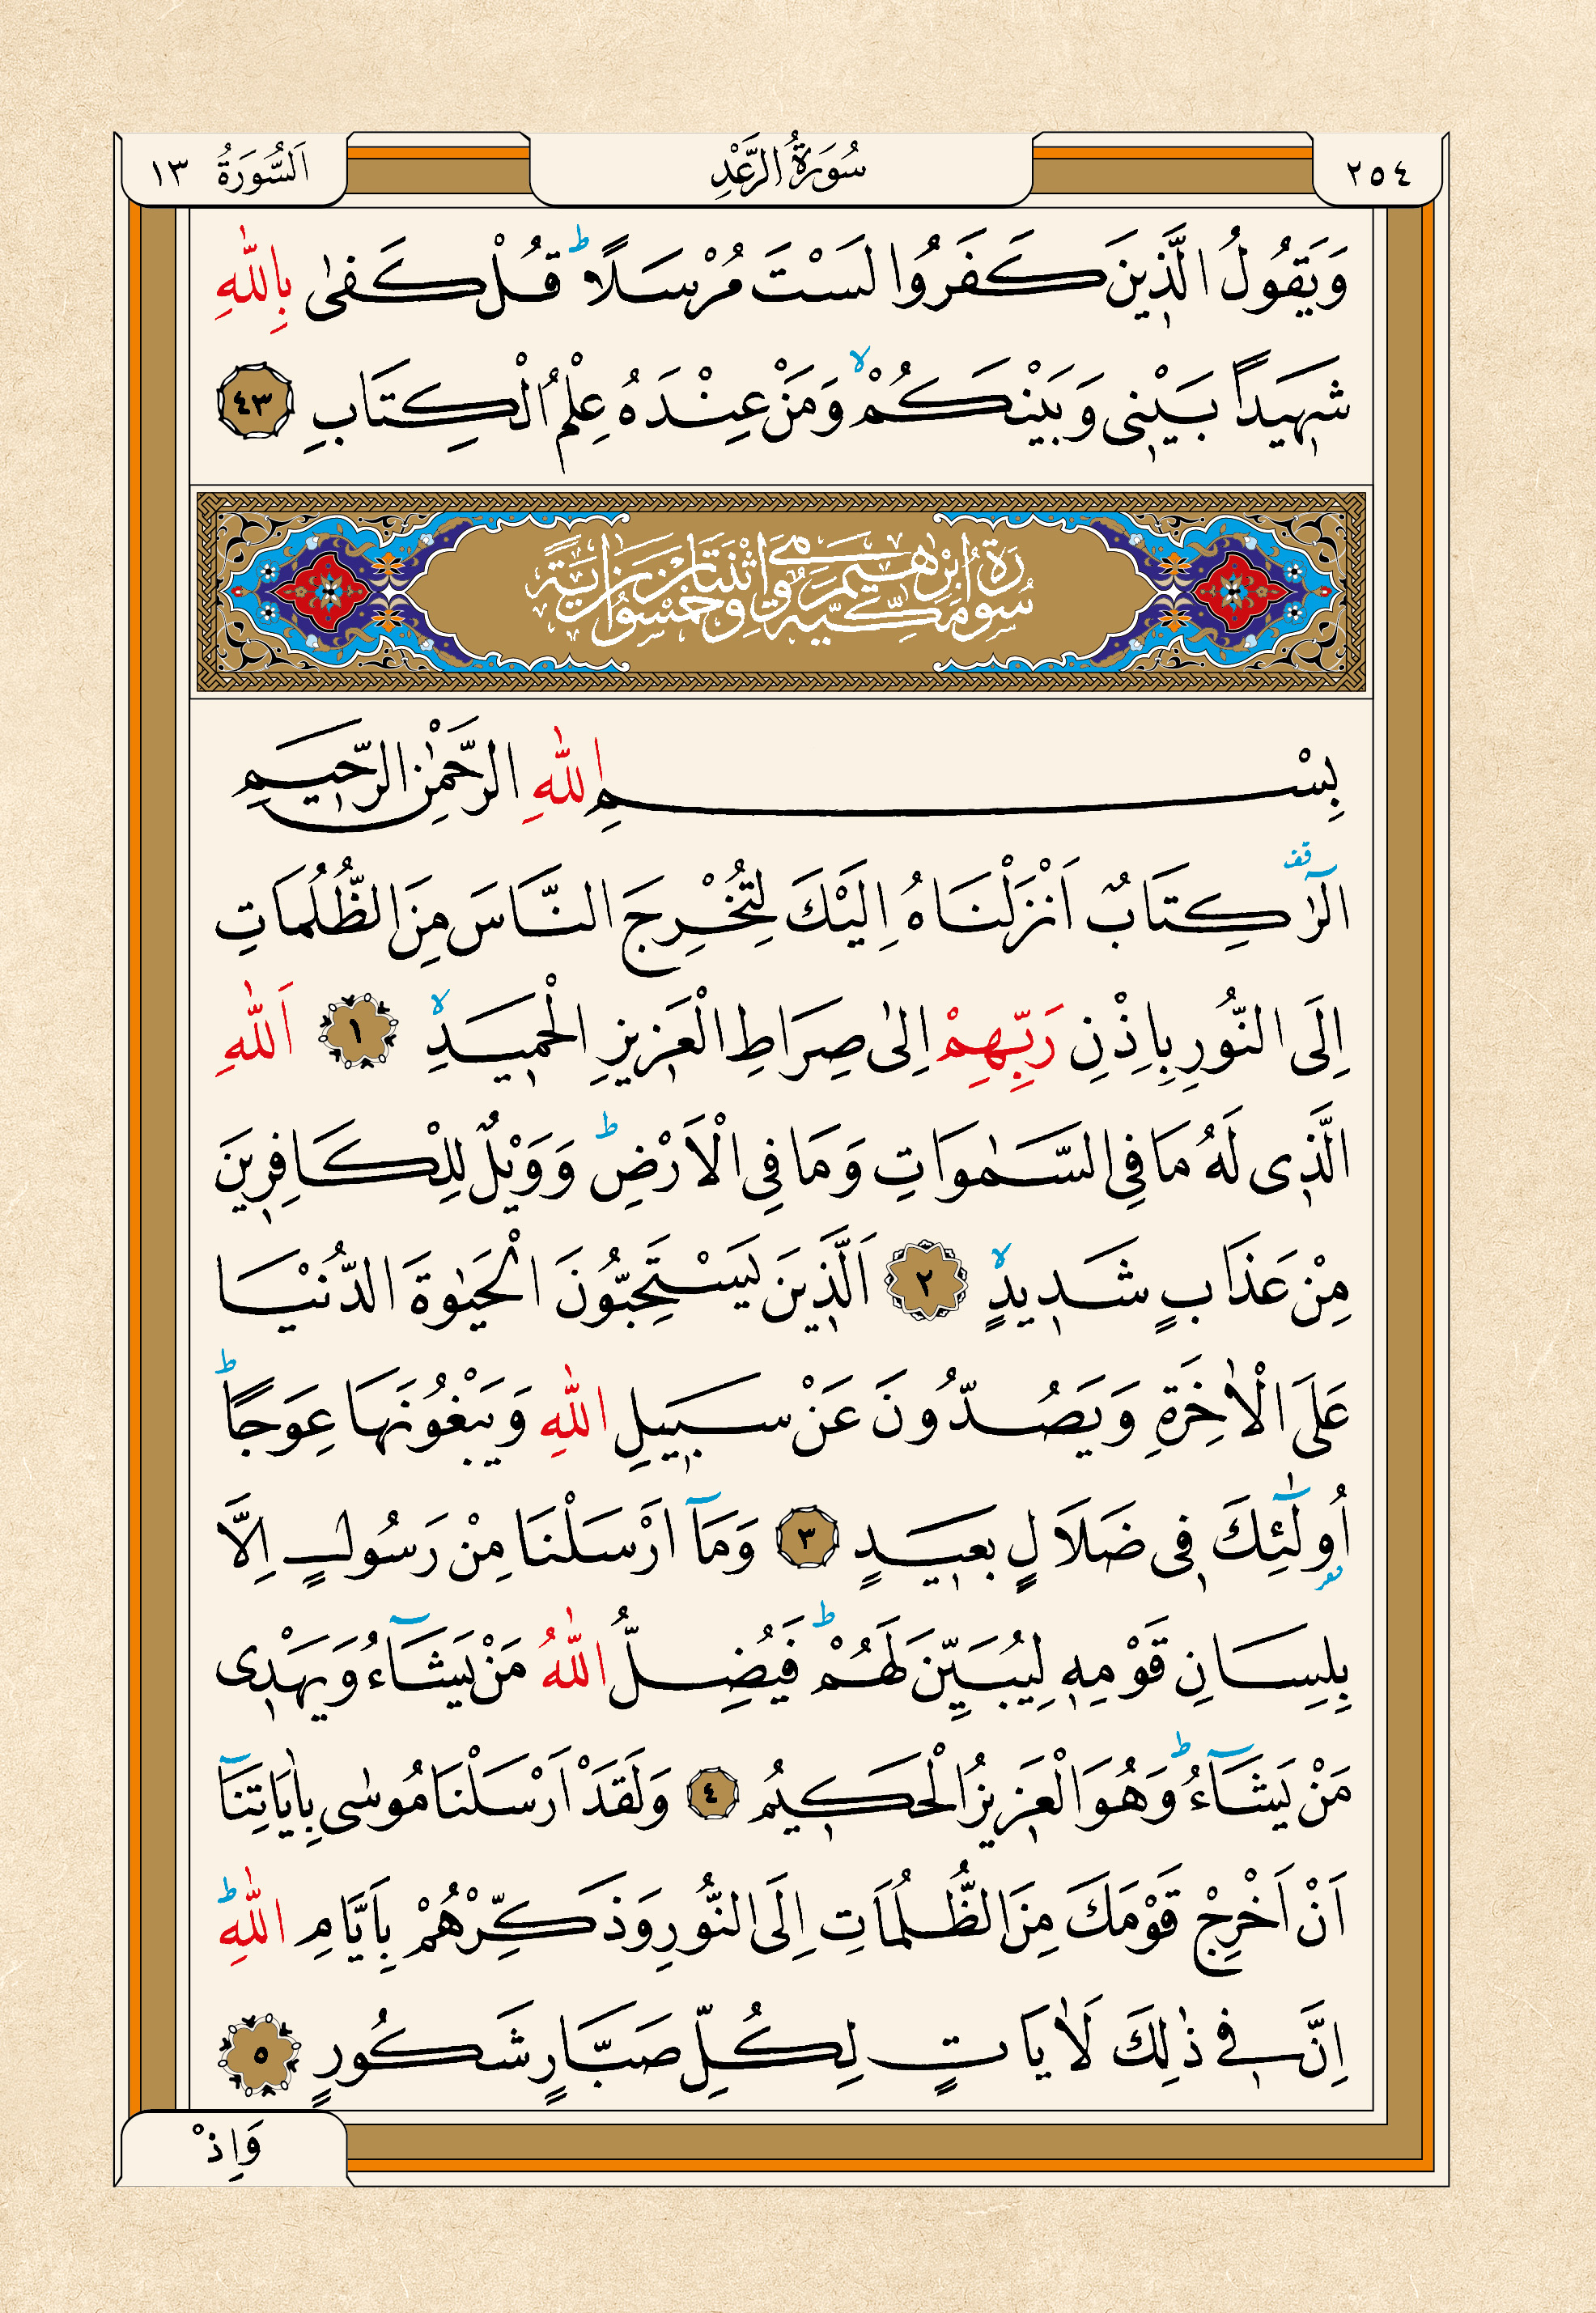 ٢٥٤ سُورَةُ الرَّعْدِ اَلسُّورَةُ ١٣
وَيَقُولُ الَّذ۪ينَ كَفَرُوا لَسْتَ مُرْسَلًاۜ قُلْ كَفٰى بِاللّٰهِ
شَه۪يدًا بَيْن۪ي وَبَيْنَكُمْۙ وَمَنْ عِنْدَهُ عِلْمُ الْكِتَابِ ٤٣
سُورَةُ اِبْرٰه۪يمَ مَكِّيَّةٌ وَهِيَ اثْنَتَانِ وَخَمْسُونَ اٰيَةً
بِسْمِ اللّٰهِ الرَّحْمٰنِ الرَّح۪يمِ
الٓرٰ۠ كِتَابٌ اَنْزَلْنَاهُ اِلَيْكَ لِتُخْرِجَ النَّاسَ مِنَ الظُّلُمَاتِ
اِلَى النُّورِ بِاِذْنِ رَبِّهِمْ اِلٰى صِرَاطِ الْعَز۪يزِ الْحَم۪يدِۙ ١ اَللّٰهِ
الَّذ۪ي لَهُ مَا فِي السَّمٰوَاتِ وَمَا فِي الْاَرْضِۜ وَوَيْلٌ لِلْكَافِر۪ينَ
مِنْ عَذَابٍ شَد۪يدٍۙ ٢ اَلَّذ۪ينَ يَسْتَحِبُّونَ الْحَيٰوةَ الدُّنْيَا
عَلَى الْاٰخِرَةِ وَيَصُدُّونَ عَنْ سَب۪يلِ اللّٰهِ وَيَبْغُونَهَا عِوَجًاۜ
اُو۬لٰٓئِكَ ف۪ي ضَلَالٍ بَع۪يدٍ ٣ وَمَٓا اَرْسَلْنَا مِنْ رَسُولٍ اِلَّا
بِلِسَانِ قَوْمِه۪ لِيُبَيِّنَ لَهُمْۜ فَيُضِلُّ اللّٰهُ مَنْ يَشَٓاءُ وَيَهْد۪ي
مَنْ يَشَٓاءُۜ وَهُوَ الْعَز۪يزُ الْحَك۪يمُ ٤ وَلَقَدْ اَرْسَلْنَا مُوسٰى بِاٰيَاتِنَٓا
اَنْ اَخْرِجْ قَوْمَكَ مِنَ الظُّلُمَاتِ اِلَى النُّورِ وَذَكِّرْهُمْ بِاَيَّامِ اللّٰهِۜ
اِنَّ ف۪ي ذٰلِكَ لَاٰيَاتٍ لِكُلِّ صَبَّارٍ شَكُورٍ ٥
وَاِذْ